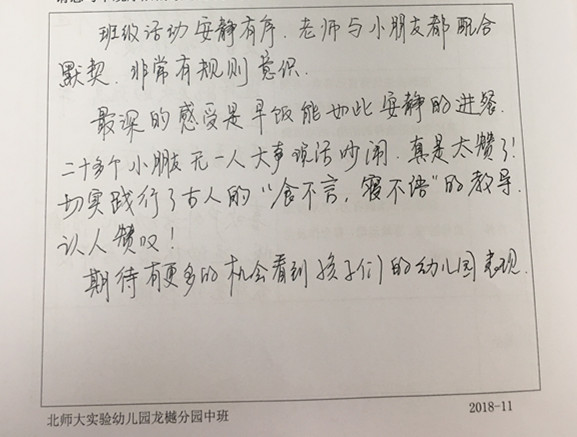 班级活动安静有序.老师与小朋友都配合
默契.非常有规则意识.
最深的感受是早饭能如此安静的进餐.
二十多个小朋友无一人大事说话吵闹.真是太赞了!
切实践行了古人的“食不言,寝不语”的教导.
认人赞叹!
期待有更多的机会看到孩子们的幼儿园表现.
北师大实验幼儿园龙樾分园中班
2018-11